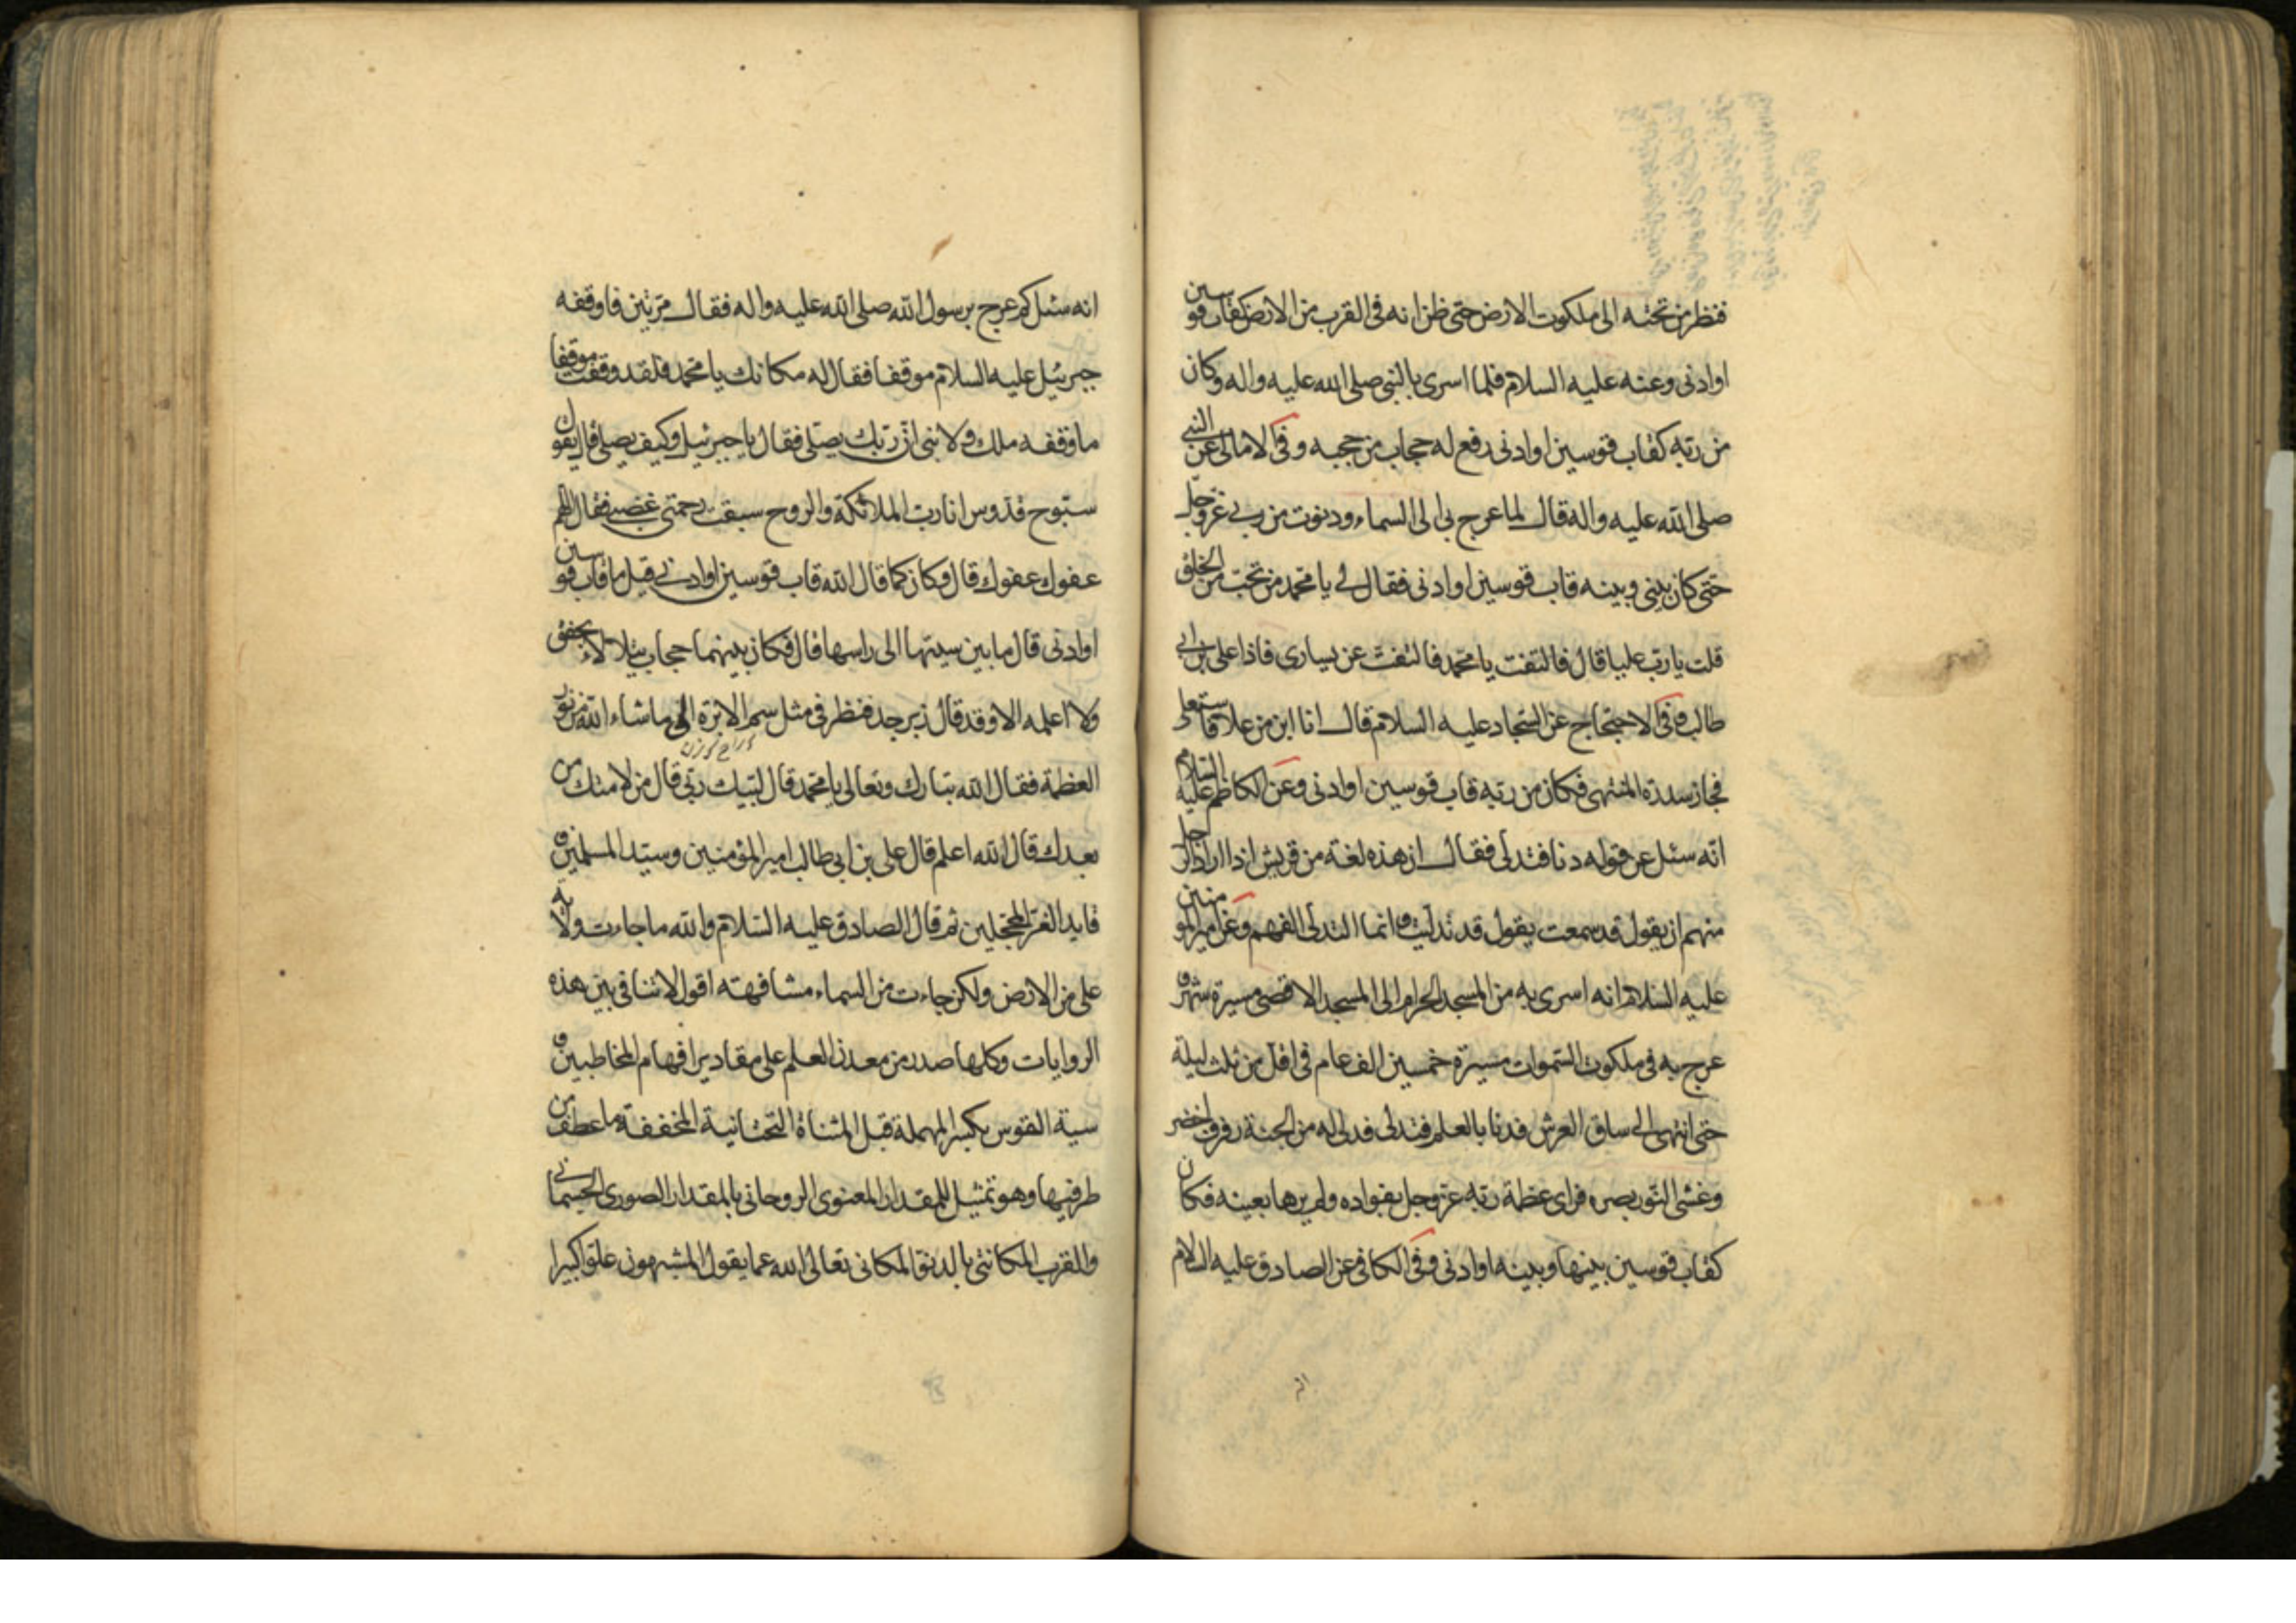 فنظر من تحته الى ملكوت الارض حتى ظن انه فى القرب من الارض كقاب قوسين
او ادنى وعنه عليه السلام فلما اسرى بالنبى صلى الله عليه واله وكان
من ربه كقاب قوسين او ادنى رفع له حجاب من حجبه وفى الامالى عن النبى
صلى الله عليه واله قال لما عرج بى الى السماء ودنوت من ربى عز وجل
حتى كان بينى وبينه قاب قوسين او ادنى فقال لى يا محمد من تحب من الخلق
قلت يا رب عليا قال فالتفت يا محمد فالتفت عن يسارى فاذا على بن ابى
طالب وفى الاحتجاج عن السجاد عليه السلام قال انا ابن من علا فاستعلى
فجاز سدرة المنتهى فكان من ربه قاب قوسين او ادنى وعن الكاظم عليه السلام
انه سئل عن قوله دنا فتدلى فقال ان هذه لغة من قريش اذا اراد الرجل
منهم ان يقول قد سمعت يقول قد تدليت وانما التدلى الفهم وعن امير المومنين
عليه السلام انه اسرى به من المسجد الحرام الى المسجد الاقصى مسيرة شهر و
عرج به فى ملكوت السموات مسيرة خمسين الف عام فى اقل من ثلث ليلة
حتى انتهى الى ساق العرش فدنا بالعلم فتدلى فدلى له من الجنة رفرف اخضر
وغشى النور بصره فراى عظمة ربه عز وجل بفواده ولم يرها بعينه فكان
كقاب قوسين بينها وبينه او ادنى وفى الكافى عن الصادق عليه السلام
انه سئل كم عرج برسول الله صلى الله عليه واله فقال مرتين فاوقفه
جبرئيل عليه السلام موقفا فقال له مكانك يا محمد فلقد وقفت موقفا
ما وقفه ملك ولا نبى ان ربك يصلى فقال يا جبرئيل وكيف يصلى قال يقول
سبوح قدوس انا رب الملائكة والروح سبقت رحمتى غضبى فقال اللهم
عفوك عفوك قال وكان كما قال الله قاب قوسين او ادنى قيل ما قاب قوسين
او ادنى قال ما بين سيتها الى راسها قال فكان بينهما حجاب يتلالاء يخفق
ولا اعلمه الا وقد قال زبرجد فنظر فى مثل سم الابرة الى ما شاء الله من نور
العظمة فقال الله تبارك وتعالى يا محمد قال لبيك ربى قال من لامتك من
بعدك قال الله اعلم قال على بن ابى طالب امير المؤمنين وسيد المسلمين و
قايد الغر المحجلين ثم قال الصادق عليه السلام والله ما جاءت ولاية
على من الارض ولكن جاءت من السماء مشافهته اقول لا تنافى بين هذه
الروايات وكلها صدر من معدن العلم على مقادير افهام المخاطبين و
سية القوس بكسر المهملة قبل المثناة التحتانية المخففة ما عطف من
طرفيها وهو تمثيل للمقدار المعنوى الروحانى بالمقدار الصورى الجسمانى
والقرب المكانتى بالدنو المكانى تعالى الله عما يقول المشبهون علوا كبيرا